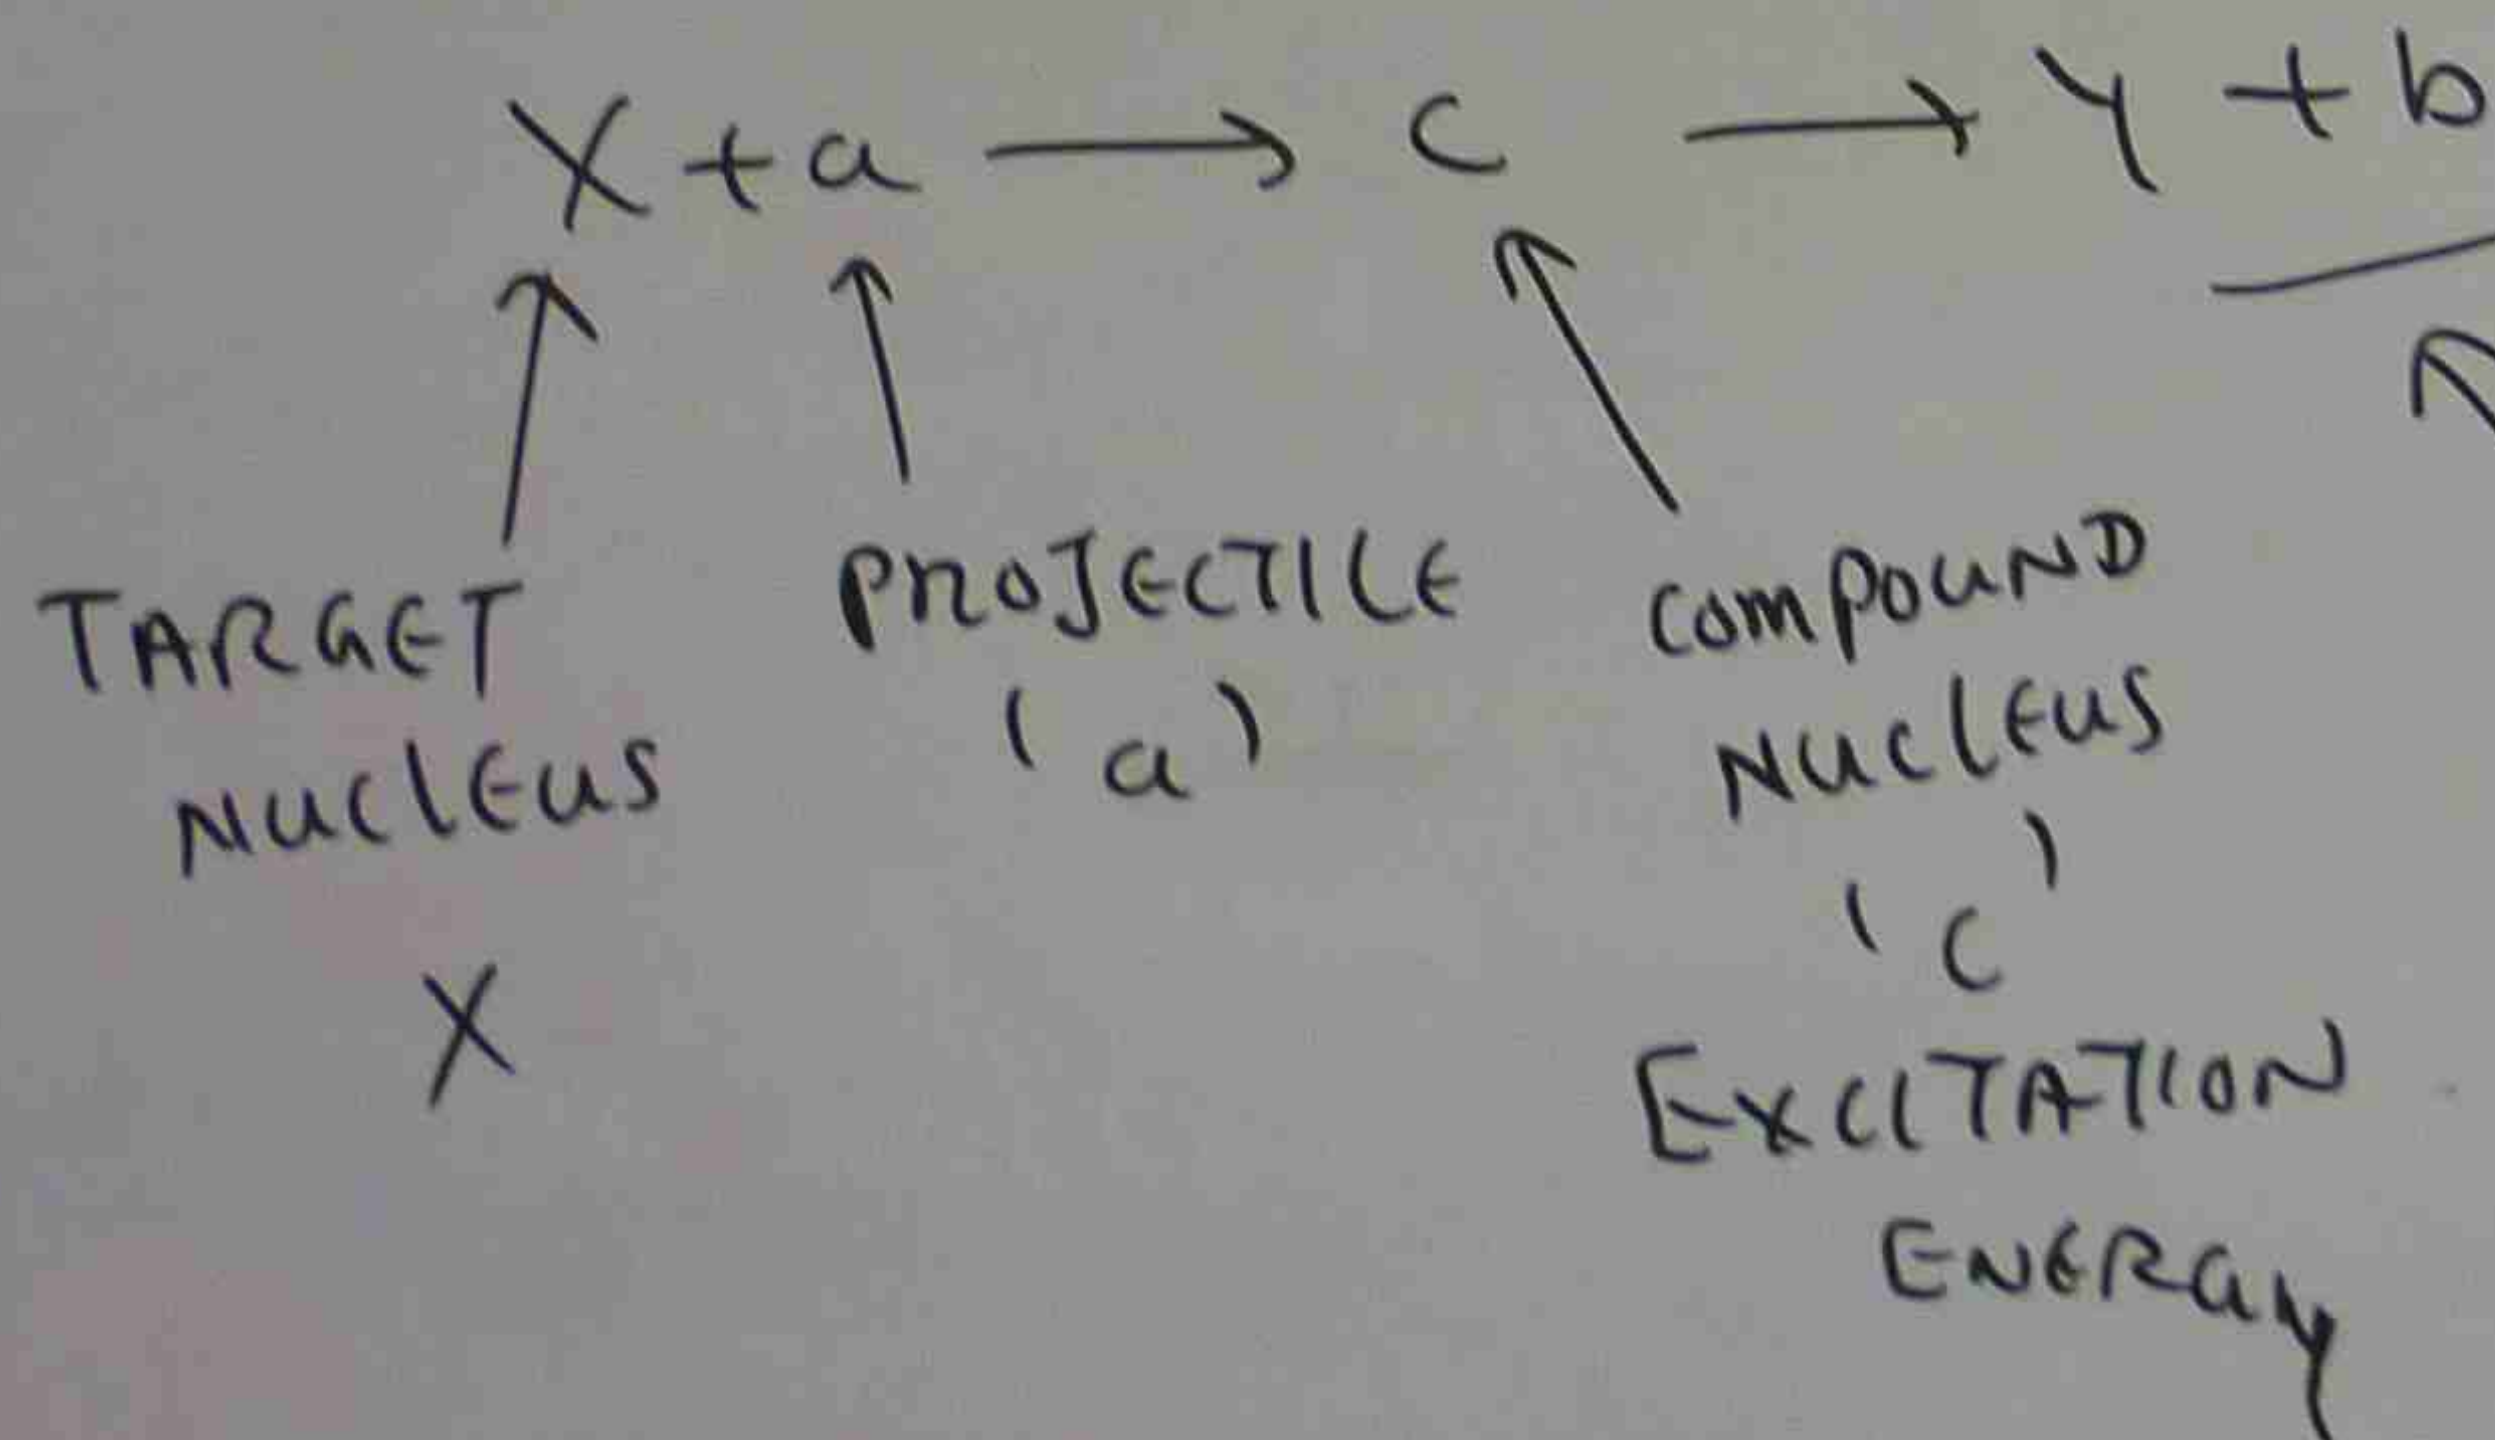 X + a → C → Y + b
TARGET
NUCLEUS
X
PROJECTILE
(a)
COMPOUND
NUCLEUS
(C)
EXCITATION
ENERGY